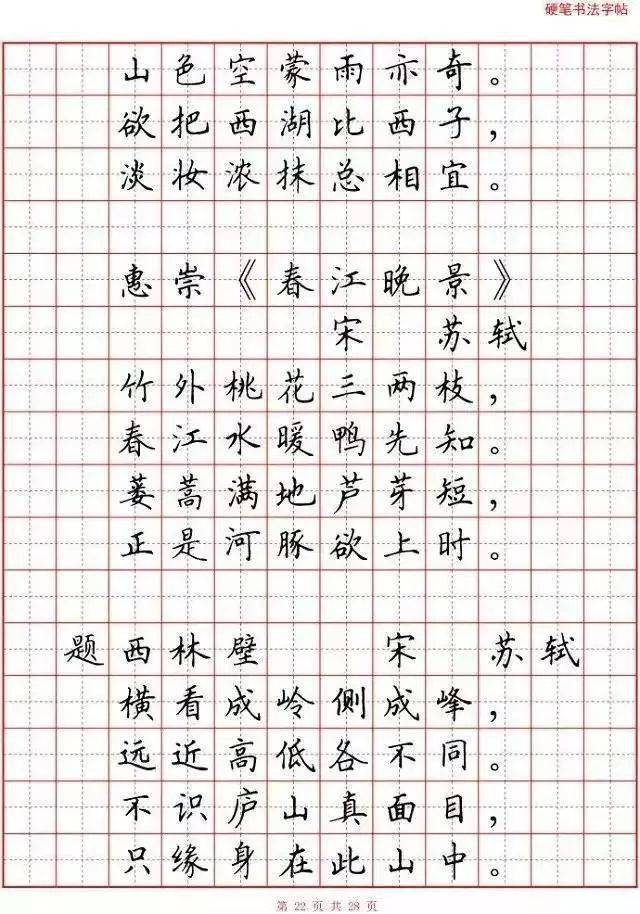 硬笔书法字帖
山色空蒙雨亦奇。
欲把西湖比西子，
淡妆浓抹总相宜。
惠崇《春江晚景》
宋 苏轼
竹外桃花三两枝，
春江水暖鸭先知。
蒌蒿满地芦芽短，
正是河豚欲上时。
题西林壁 宋 苏轼
横看成岭侧成峰，
远近高低各不同。
不识庐山真面目，
只缘身在此山中。
第 22 页 共 28 页